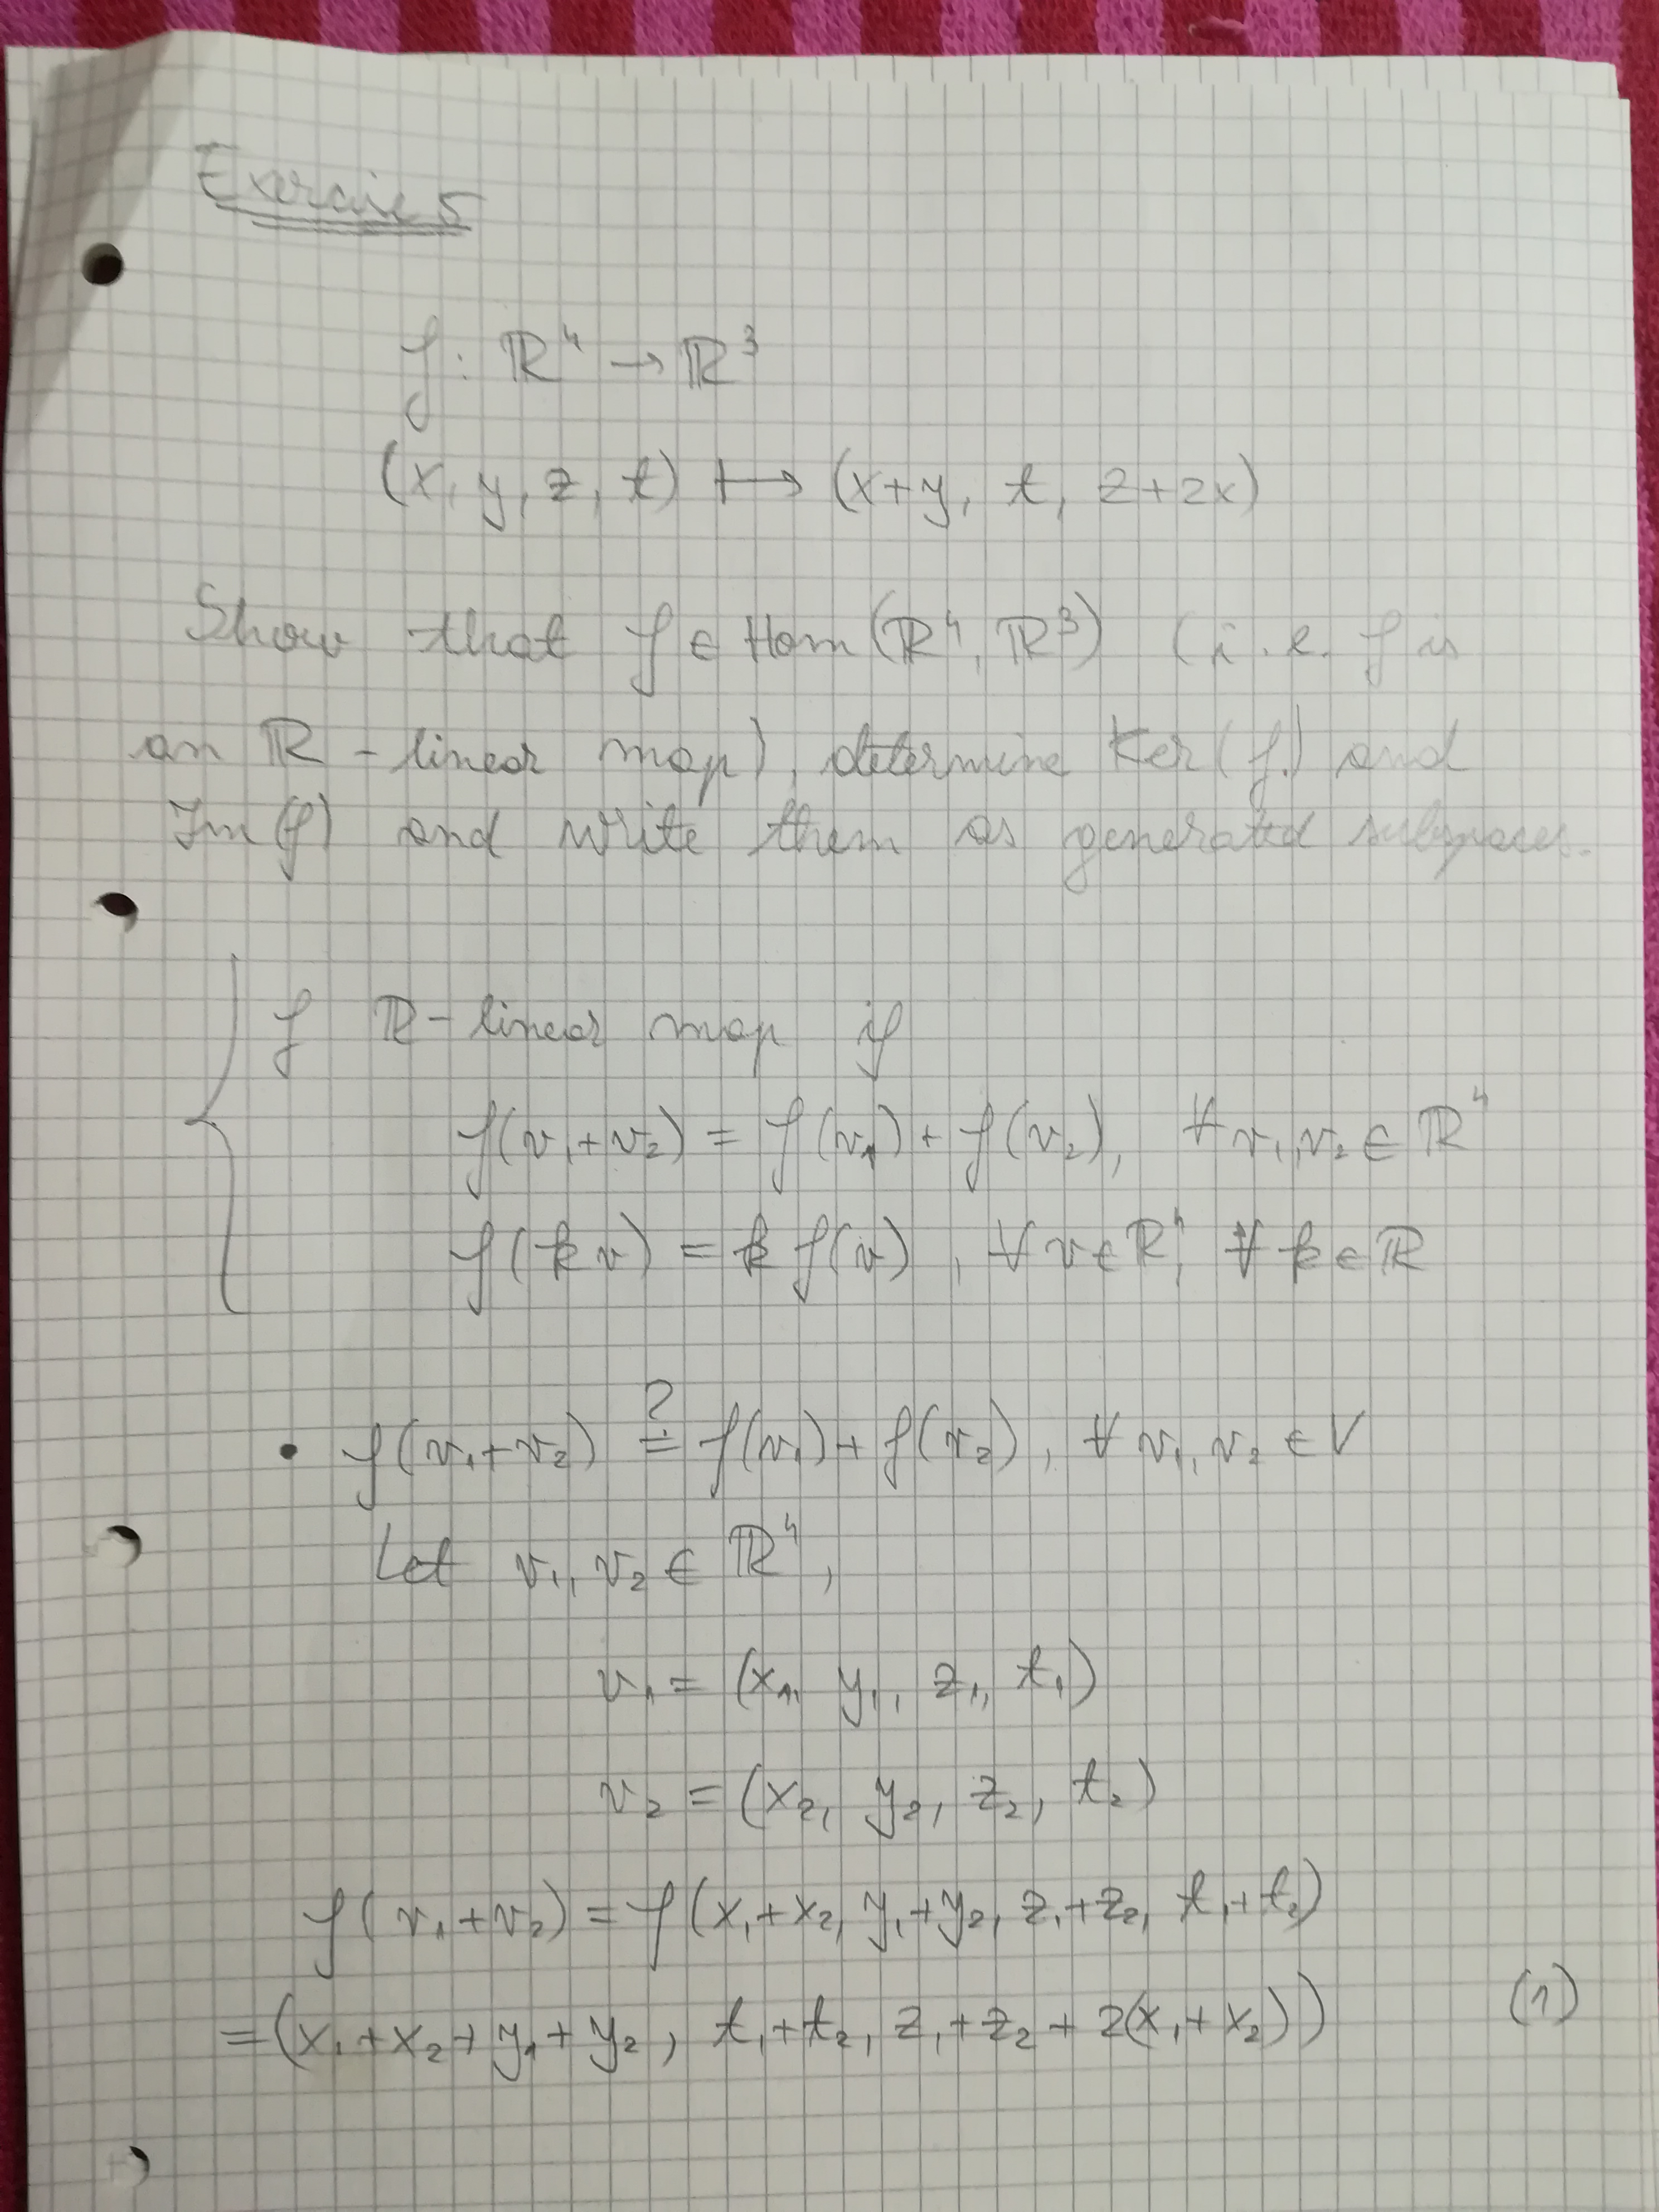 Exercise 5
f: ℝ⁴ → ℝ³
(x, y, z, t) ↦ (x+y, t, z+2x)
Show that f ∈ Hom(ℝ⁴, ℝ³) (i.e. f is
an ℝ-linear map), determine Ker(f) and
Im(f) and write them as generated subspaces.
f ℝ-linear map if
f(v₁+v₂) = f(v₁) + f(v₂), ∀ v₁, v₂ ∈ ℝ⁴
f(kv) = k f(v), ∀ v ∈ ℝ⁴, ∀ k ∈ ℝ
• f(v₁+v₂) ≟ f(v₁) + f(v₂), ∀ v₁, v₂ ∈ V
Let v₁, v₂ ∈ ℝ⁴,
v₁ = (x₁, y₁, z₁, t₁)
v₂ = (x₂, y₂, z₂, t₂)
f(v₁+v₂) = f(x₁+x₂, y₁+y₂, z₁+z₂, t₁+t₂)
= (x₁+x₂+y₁+y₂, t₁+t₂, z₁+z₂+2(x₁+x₂)) (1)